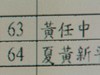 63 黃任中
64 夏黃新平